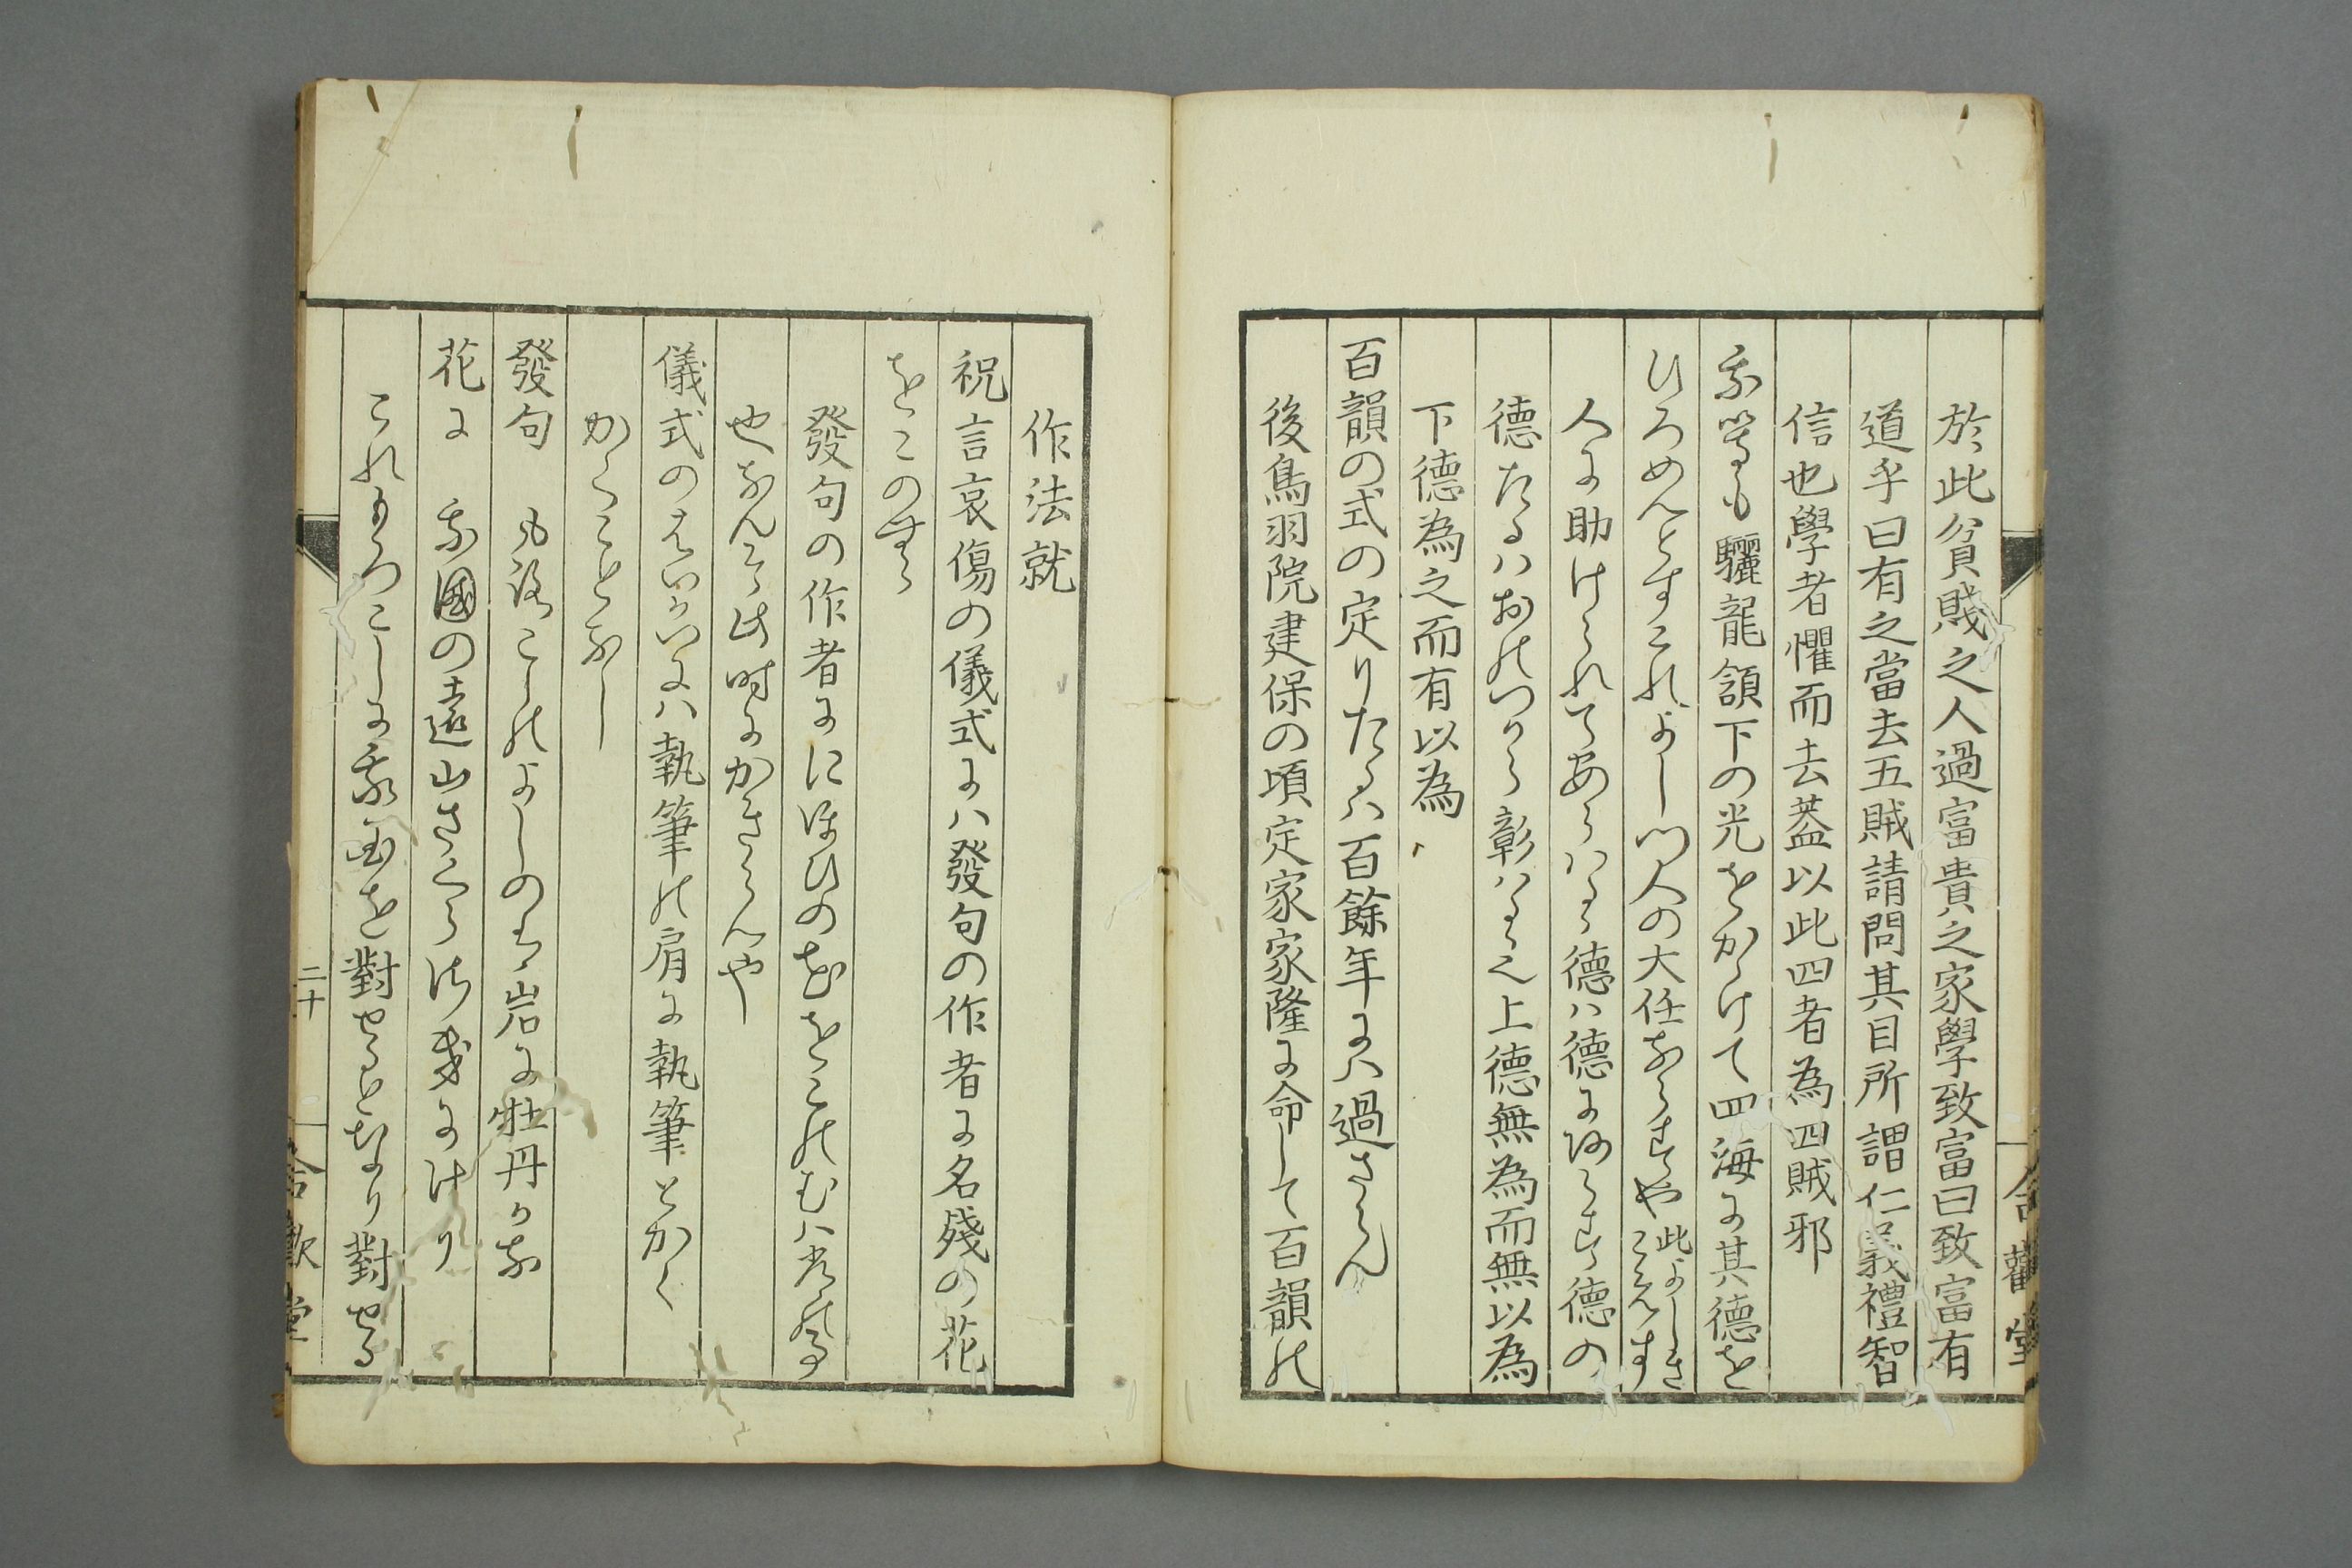 於此貧賤之人過富貴之家學致富曰致富有
道乎曰有之當去五賊請問其目所謂仁義禮智
信也學者懼而去葢以此四者為四賊邪
我等も驪龍頷下の光をかゝけて四海に其德を
ひろめんとすこれよし門人の大任ならすや
此よしき
こえす
人に助けられてあらハるゝ德ハ德にあらす德の
德たるハおのつから彰ハるゝ之上德無為而無以為
下德為之而有以為
百韻の式の定りたるハ百餘年にハ過さらん
後鳥羽院建保の頃定家家隆に命して百韻の
合歡堂
作法就
祝言哀傷の儀式にハ發句の作者に名殘の花
をこのする
發句の作者ににほひの花をこのむハ
也なんそ此時にかきらんや
儀式のはいかいにハ執筆の肩に執筆とかく
かくことなし
發句 もろこしのよしのゝ岩に牡丹かな
花に 我國の遠山さくら にけり
これもろこしに我國を對せしとなり對せる
二十
合歡堂